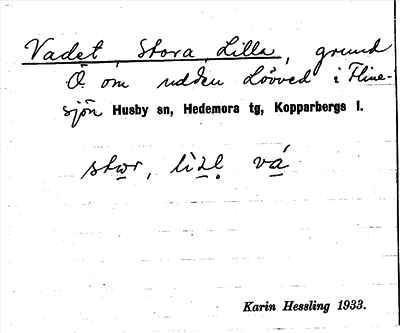 Vadet, Stora, Lilla, grund
Ö. om udden Lövved i Fline-
sjön Husby sn, Hedemora tg, Kopparbergs l.
stor, litl vá
Karin Hessling 1933.